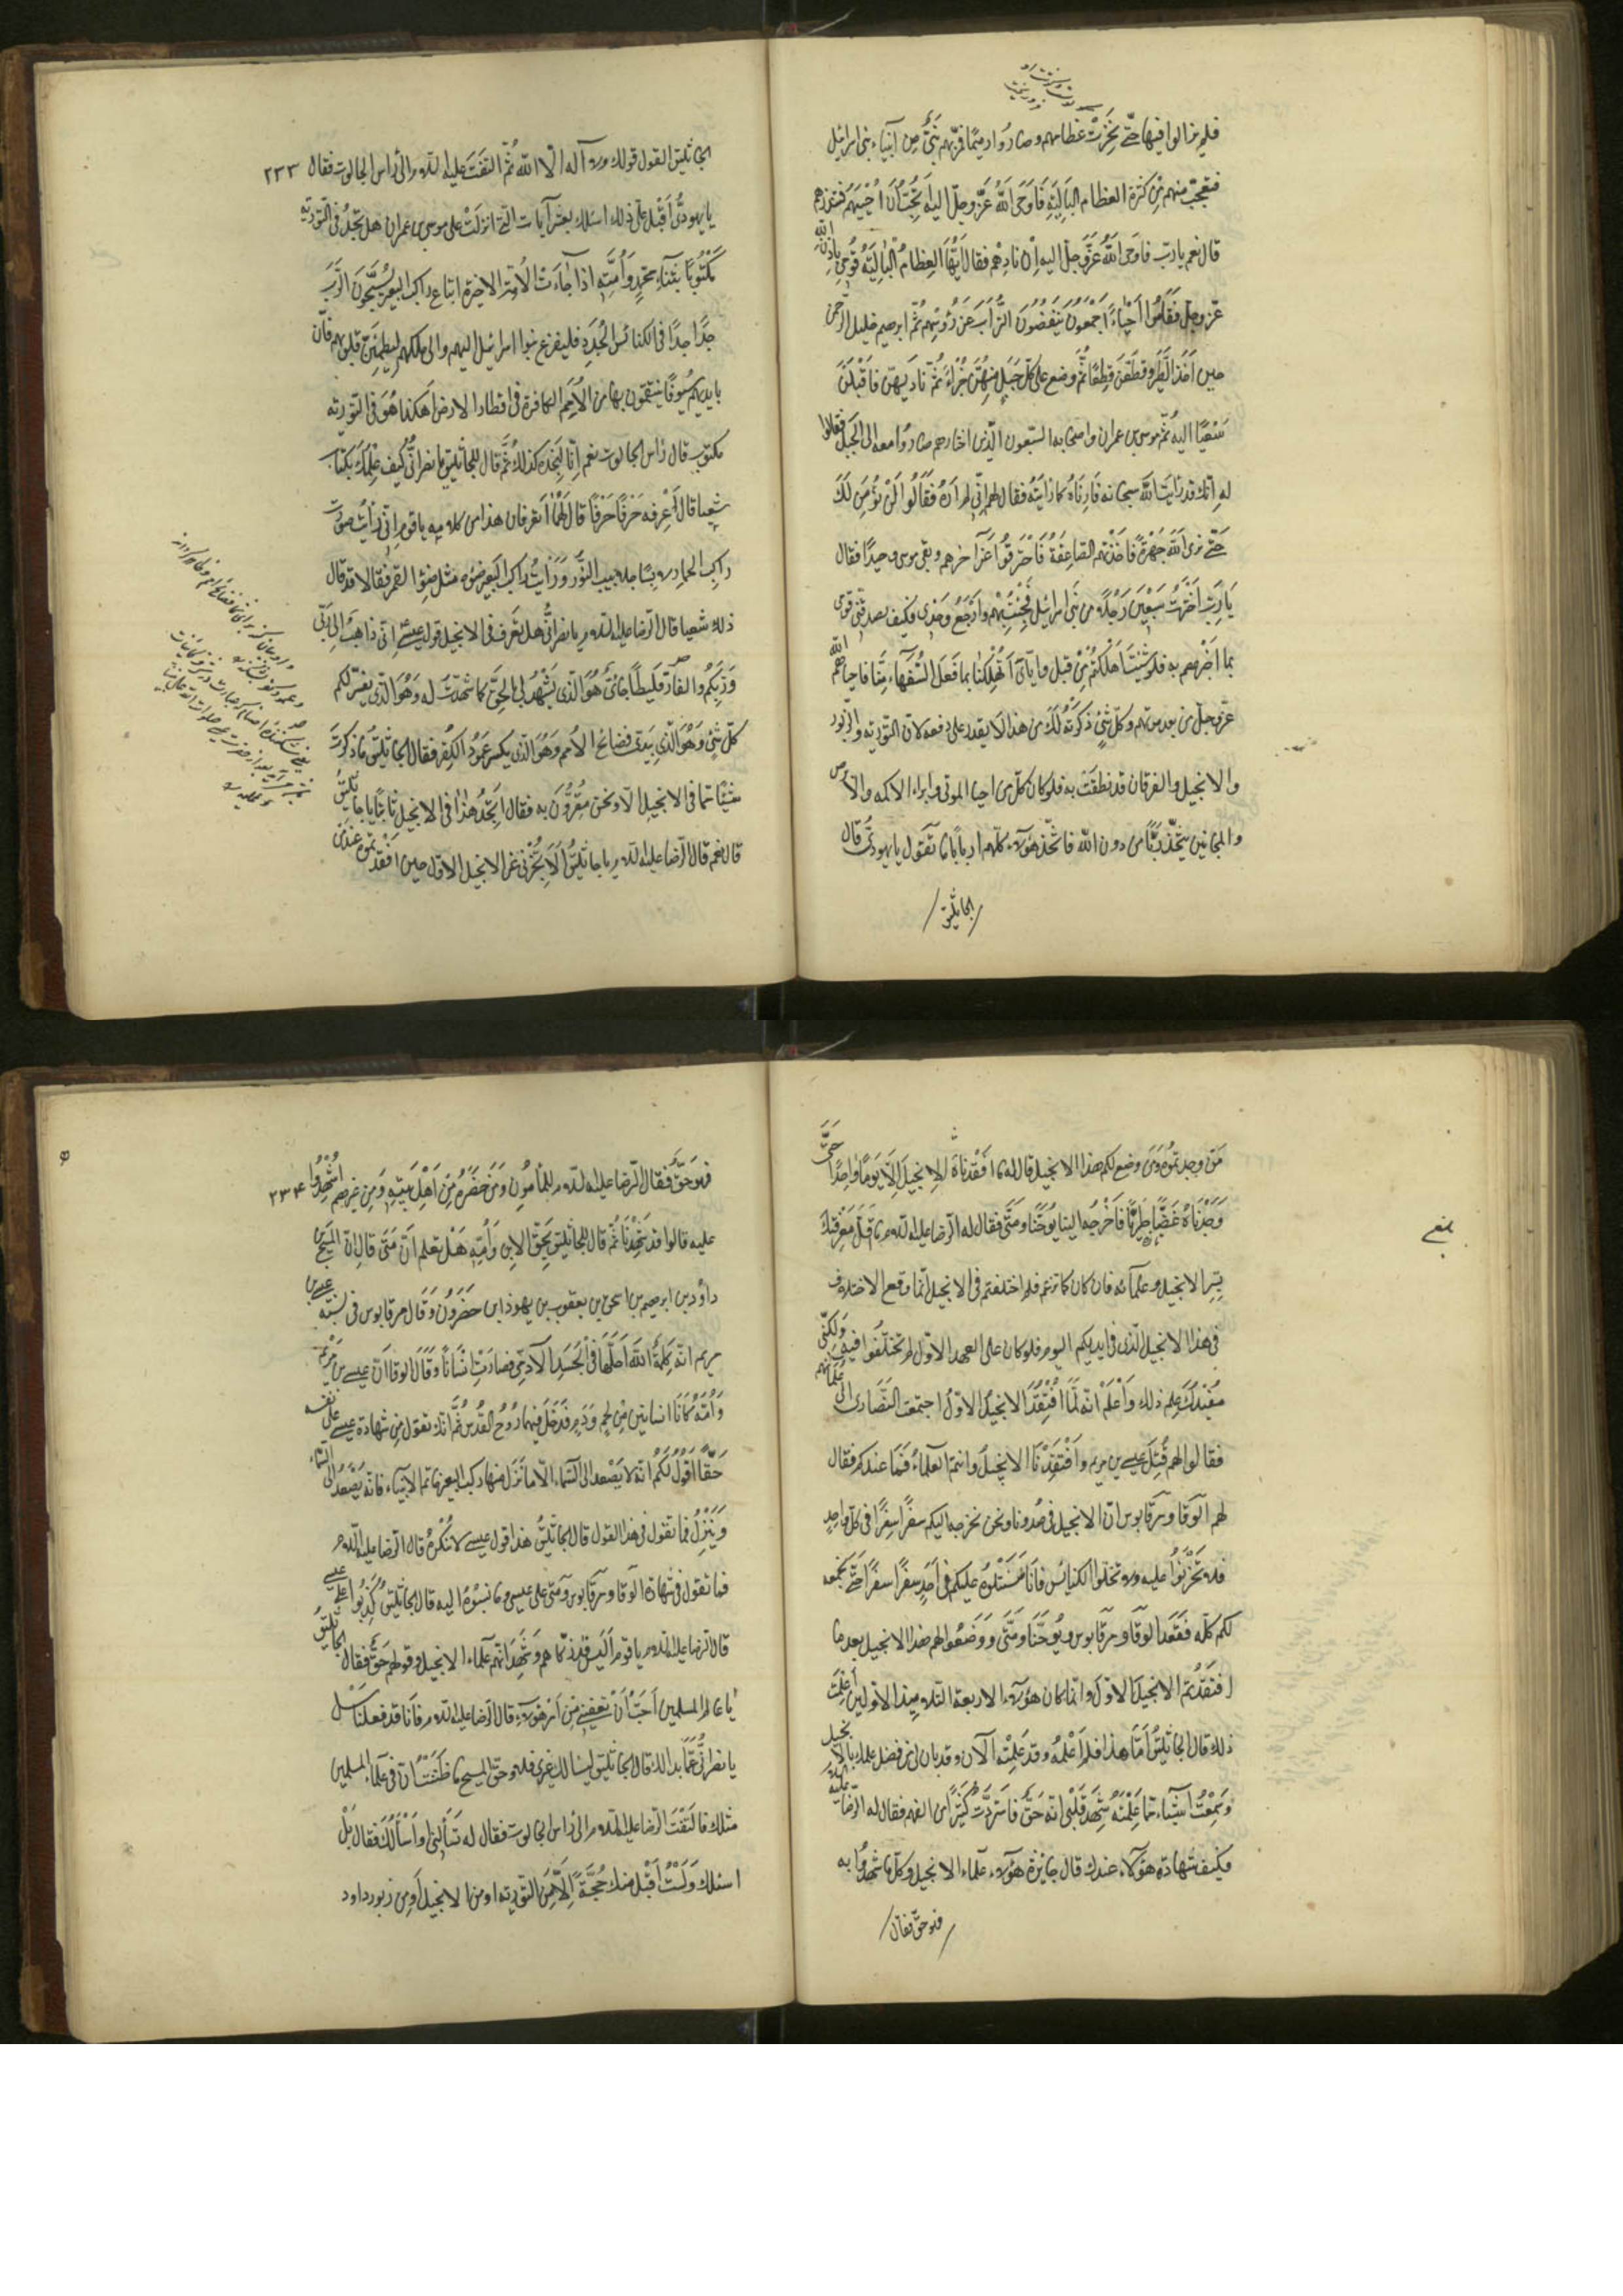 فلم يزالوا فيها حتّى نَخِرَتْ عظامهم وصارُوا رميمًا فمرّ بهم نَبِىٌّ مِن اَنبياء بنى اسرائيل
فتعجّب منهم مِنْ كثرة العظام الباليَةِ فَاَوحَى اللهُ عَزَّ وجلّ اليه اَتُحِبُّ اَنْ اُحْيِيَهُمْ فتنذرهم
قال نعم يا ربّ فاوحى اللهُ عَزَّ وَجلّ اليهِ اِنْ نادِهْم فقال اَيَّتُها العِظامُ الْبالِيَة قُومِى بِاِذْنِ اللهِ
عزّ وجلّ فَقَامُوا اَحْيٰاءً اَجْمَعُونَ يَنْفُضُونَ التُّرٰابَ عَن رُؤُسِهِم ثُمَّ ابرهيم خليل الرّحمن
حين اَخَذ الطَّيْرَ وقطّعَهُنّ قِطَعًا ثُمَّ وضع على كلّ جَبَلٍ مِنْهُنّ جُزْاً ثُمّ ناديهُنّ فَاَقْبَلْنَ
سَعْيًا اليه ثُمّ موسى بن عمران واصحابه السّبعون الّذين اختارهم صارُوا معه الى الجَبَلِ فقالوا
له اِنّك قد رَاَيتَ اللهَ سبحانه فَاَرِنَاهُ كما رَاَيْتَه فقال لهم اِنّى لم اَرَهُ فقَالُوا لَنْ نُؤْمِنَ لَكَ
حَتّى نَرى اللهَ جَهْرَةً فَاَخَذَتْهم الصّاعِقَةُ فَاحْتَرَقُوا عَنْ آخرهم وبقى موسى وحيدًا فقال
يا رَبِّ اخْتَرتُ سَبْعِينَ رَجُلاً من بَنى اسرائيل فَجِئْتُ بِهِمْ وَاَرْجِعُ وَحْدى فكيف يصدّقنى قَومى
بما اَخْبرهم به فلو شِئْتَ اَهلكتَهُم مِنْ قبل وايّاىَ اَتُهْلِكُنٰا بِما فَعَلَ السُّفَهٰاءُ مِنّا فاحياهم الله
عزّ وجلّ من بعد موتهم وكلّ شىءٍ ذكرتُه لَكَ من هذا لا يقدر على دفعه لانّ التّورية والزّبور
والانجيل والفرقان قد نطقَتْ به فلو كان كلّ من احيا الموتى وابراء الاكمه والابرص
والمجانين يتّخذ ربًّا من دون الله فاتّخذ هؤلاء كلّهم اربابًا ما تقول يا يهودىّ قال
الجاثليق
الجاثليق القول قولك ولا آله الّا اللهُ ثُمَّ التَفَتَ عليه السّلام الى رأس الجالوت فقال ٢٣٣
يا يهودىُّ اَقْبِلْ عَلَىَّ اسئلك بعشر آيات التى اُنزِلَتْ على موسى بن عمران هل تَجِدُ فى التّورية
مَكْتُوبًا بِنَبَاءِ محمّدٍ وَاُمّتِهِ اذا جآءَتْ الْاُمّة الاخيرة اتباع راكب البعير يُسبِّحُونَ الرَّبَّ
جِدًّا جِدًّا فى الكنائس الْجُدُدِ فليفزع بنوا اسرائيل اليهم والى ملكهم لِيَطْمَئِنَّ قلوبهم فانّ
بايديهم سُيُوفًا ينتقمون بها من الاُمَمِ الكافرة فى اقطار الارض اهكذا هُوَ فى التورية
مكتوب قال رأس الجالوت نعم اِنّا لَنَجِدُه كذلك ثُمَّ قال للجاثليق يا نصرانىُّ كيف عِلْمُك بكتاب
شعيا قال اَعْرِفه حَرْفًا حَرْفًا قال لَهُمٰا اَتعرفان هذا من كلامه يا قوم اِنّى رَاَيْتُ صورَة
راكب الحمار لابسًا جلابيب النّور وَرَاَيْتُ راكب البَعير ضَوْئه مثل ضَوْءِ القمر فقالا قد قال
ذلك شعيا قال الرّضا عليه السّلام يا نصرانىُّ هل تعرف فى الانجيل قول عيسى اِنّى ذاهبٌ اِلى رَبّى
وَرَبِّكُمْ والفارقليطَا جائىٌ هُوَ الّذى يَشْهَدُ لى بالْحَقِّ كما شَهِدْتُ له وَهُوَ الّذى يفسّر لكم
كلَّ شَىْءٍ وَهُوَ الّذى يُبدى فضائح الاُمم وَهُوَ الّذى يكسر عَمُودَ الكُفر فقال الجاثليقُ مٰا ذكرتَ
شيئًا ممّا فى الانجيل الّا ونحن مُقِرُّونَ به فقال اَتَجِدُ هٰذا فى الانجيل ثابتًا يا جاثليقُ
قال نعم قال الرّضا عليه السّلام يا جاثليقُ اَلا تُخْبِرُنى عَن الانجيل الاوّل حين افْتَقَدْتموه عند مَن
مَنْ وجدتموه ومَنْ وضع لكم هذا الانجيل قال له ما افْتَقَدْنَاهُ الانجيلَ اِلّا يَوْمًا وٰاحِدًا حَتّٰى
وَجَدْنَاهُ غَضًّا طَرِيًّا فَاَخْرَجَه الينا يُوحَنّا ومَتّى فقال له الرّضا عليه السّلام ما اَقَلَّ مَعْرِفَتَكَ
بِسِرِّ الانجيل وعلمآئه فان كان كما تزعم فلم اختلفتم فى الانجيل انّما وقع الاختلاف
فى هذا الانجيل الّذى فى ايديكم اليوم فلو كان على العهد الاوّل لم تختلفوا فيه وَلكِنّى
مُفِيدُكَ عِلم ذلك وَاعْلَمْ انّه لَمّا افتُقِدَ الانجيلُ الاوّلُ اجتمعت النَّصَارى الى علمائهم
فقالوا لهم قُتِلَ عيسى بن مريم وَافْتَقَدْنَا الانجيلَ وانتم العلماءُ فَما عندكم فقال
لهم الوقا ومرقابوس انّ الانجيل فى صُدُورنا ونحن نخرجه اليكم سفرًا سِفرًا فى كلّ اَحَدٍ
فلا تَحْزَنوا عليه ولا تخلوا الكنائس فَانّا سَنَتْلُوهُ عليكم فى اَحَدٍ سِفرًا سِفرًا حَتّى نجمعه
لكم كلّه فَقَعَد الوقا ومرقابوس ويُوحَنَّا ومَتّى وَوَضَعُوا لهم هذا الانجيل بعد ما
افتَقَدْتُم الانجيلَ الاوّل وانّما كان هؤلاء الاربعة التلاميذ الاوّلين اَعَلِمْتَ
ذلك قال الجاثليقُ اَمّا هذا فلم اَعْلَمْه وقد عَلِمْتُه الآن وقد بان لى فضل علمك بالانجيل
وَسَمِعْتُ اَشياءَ ممّا عَلِمْتَه شَهِدَ قَلْبى انّه حَقٌّ فاستَزدتُ كَثِيرًا من الفهم فقال له الرّضا عليه السّلام
فكيف شهادة هؤلاء عندك قال جائزة هؤلاء علماء الانجيل وكلّ ما شهدُوا به
فهو حقّ فقال
فهو حَقٌّ فقال الرّضا عليه السّلام للمأمون وَمَنْ حَضَرَهُ مِنْ اَهْلِ بَيْتِهِ وَمِن غيرهم اشْهَدُوا ٢٣٤
عليه قالوا قد شَهِدْنا ثُمَّ قال للجاثليق بِحَقِّ الابن وَاُمّه هَلْ تعلم اَنّ مَتّى قال انّ المسيح بن
داود بن ابرهيم بن اسحق بن يعقوب بن يهوذا بن حَضَرون وَقال مرقابوس فى نسبة عيسى بن
مريم انّه كَلِمةُ الله اَحَلّها فى الْجَسَدِ الآدمى فصارَتْ اِنْسَانًا وَقَالَ الوقا اَنّ عيسى بن مَرْيَم
وَاُمّه كانَا انسانين مِنْ لحم وَدَمٍ فَدَخَلَ فيهما رُوحُ القُدُس ثُمَّ انّك تقول مِن شهادة عيسى على نفسه
حَقًّا اَقُولُ لكم انّه لا يَصْعد الى السّماء الّا ما نَزَلَ منها راكب البعير خاتم الانبياء فانّه يَصْعَدُ الى السّماء
وَيَنْزِلُ فما تقول فى هذا القول قال الجاثليقُ هذا قول عيسى لا نُنْكِرُه قال الرّضا عليه السّلام
فما تقول فى شهادة الوقا ومرقابوس ومتى على عيسى وما نسَبُوهُ اليه قال الجاثليقُ كَذَبُوا على عيسى
قال الرّضا عليه السلام يا قوم اَلَيس قد زكّاهم وَشَهِدَ انّهم علماء الانجيل وقولهم حَقٌّ فقال الجاثليق
يا عالم المسلمين اُحِبُّ اَنْ تعفينى مِن اَمْر هؤلاء قال الرّضا عليه السلام فَانّا قد فعلنا سَلْ
يا نصرانىُّ عَمّا بدا لك قال الجاثليق ليسألك غيرى فلا وحقّ المسيح ما ظَنَنْتُ اَنّ فى علماء المسلمين
مثلك فالتَفَتَ الرّضا عليه السلام الى رأس الجالوت فقال له تسألنى او اَسْأَلُكَ فقال بَلْ
اسئلك وَلَسْتُ اَقْبَلُ منك حُجَّةً اِلّا مِنَ التورية او من الانجيل اَو مِن زبور داود